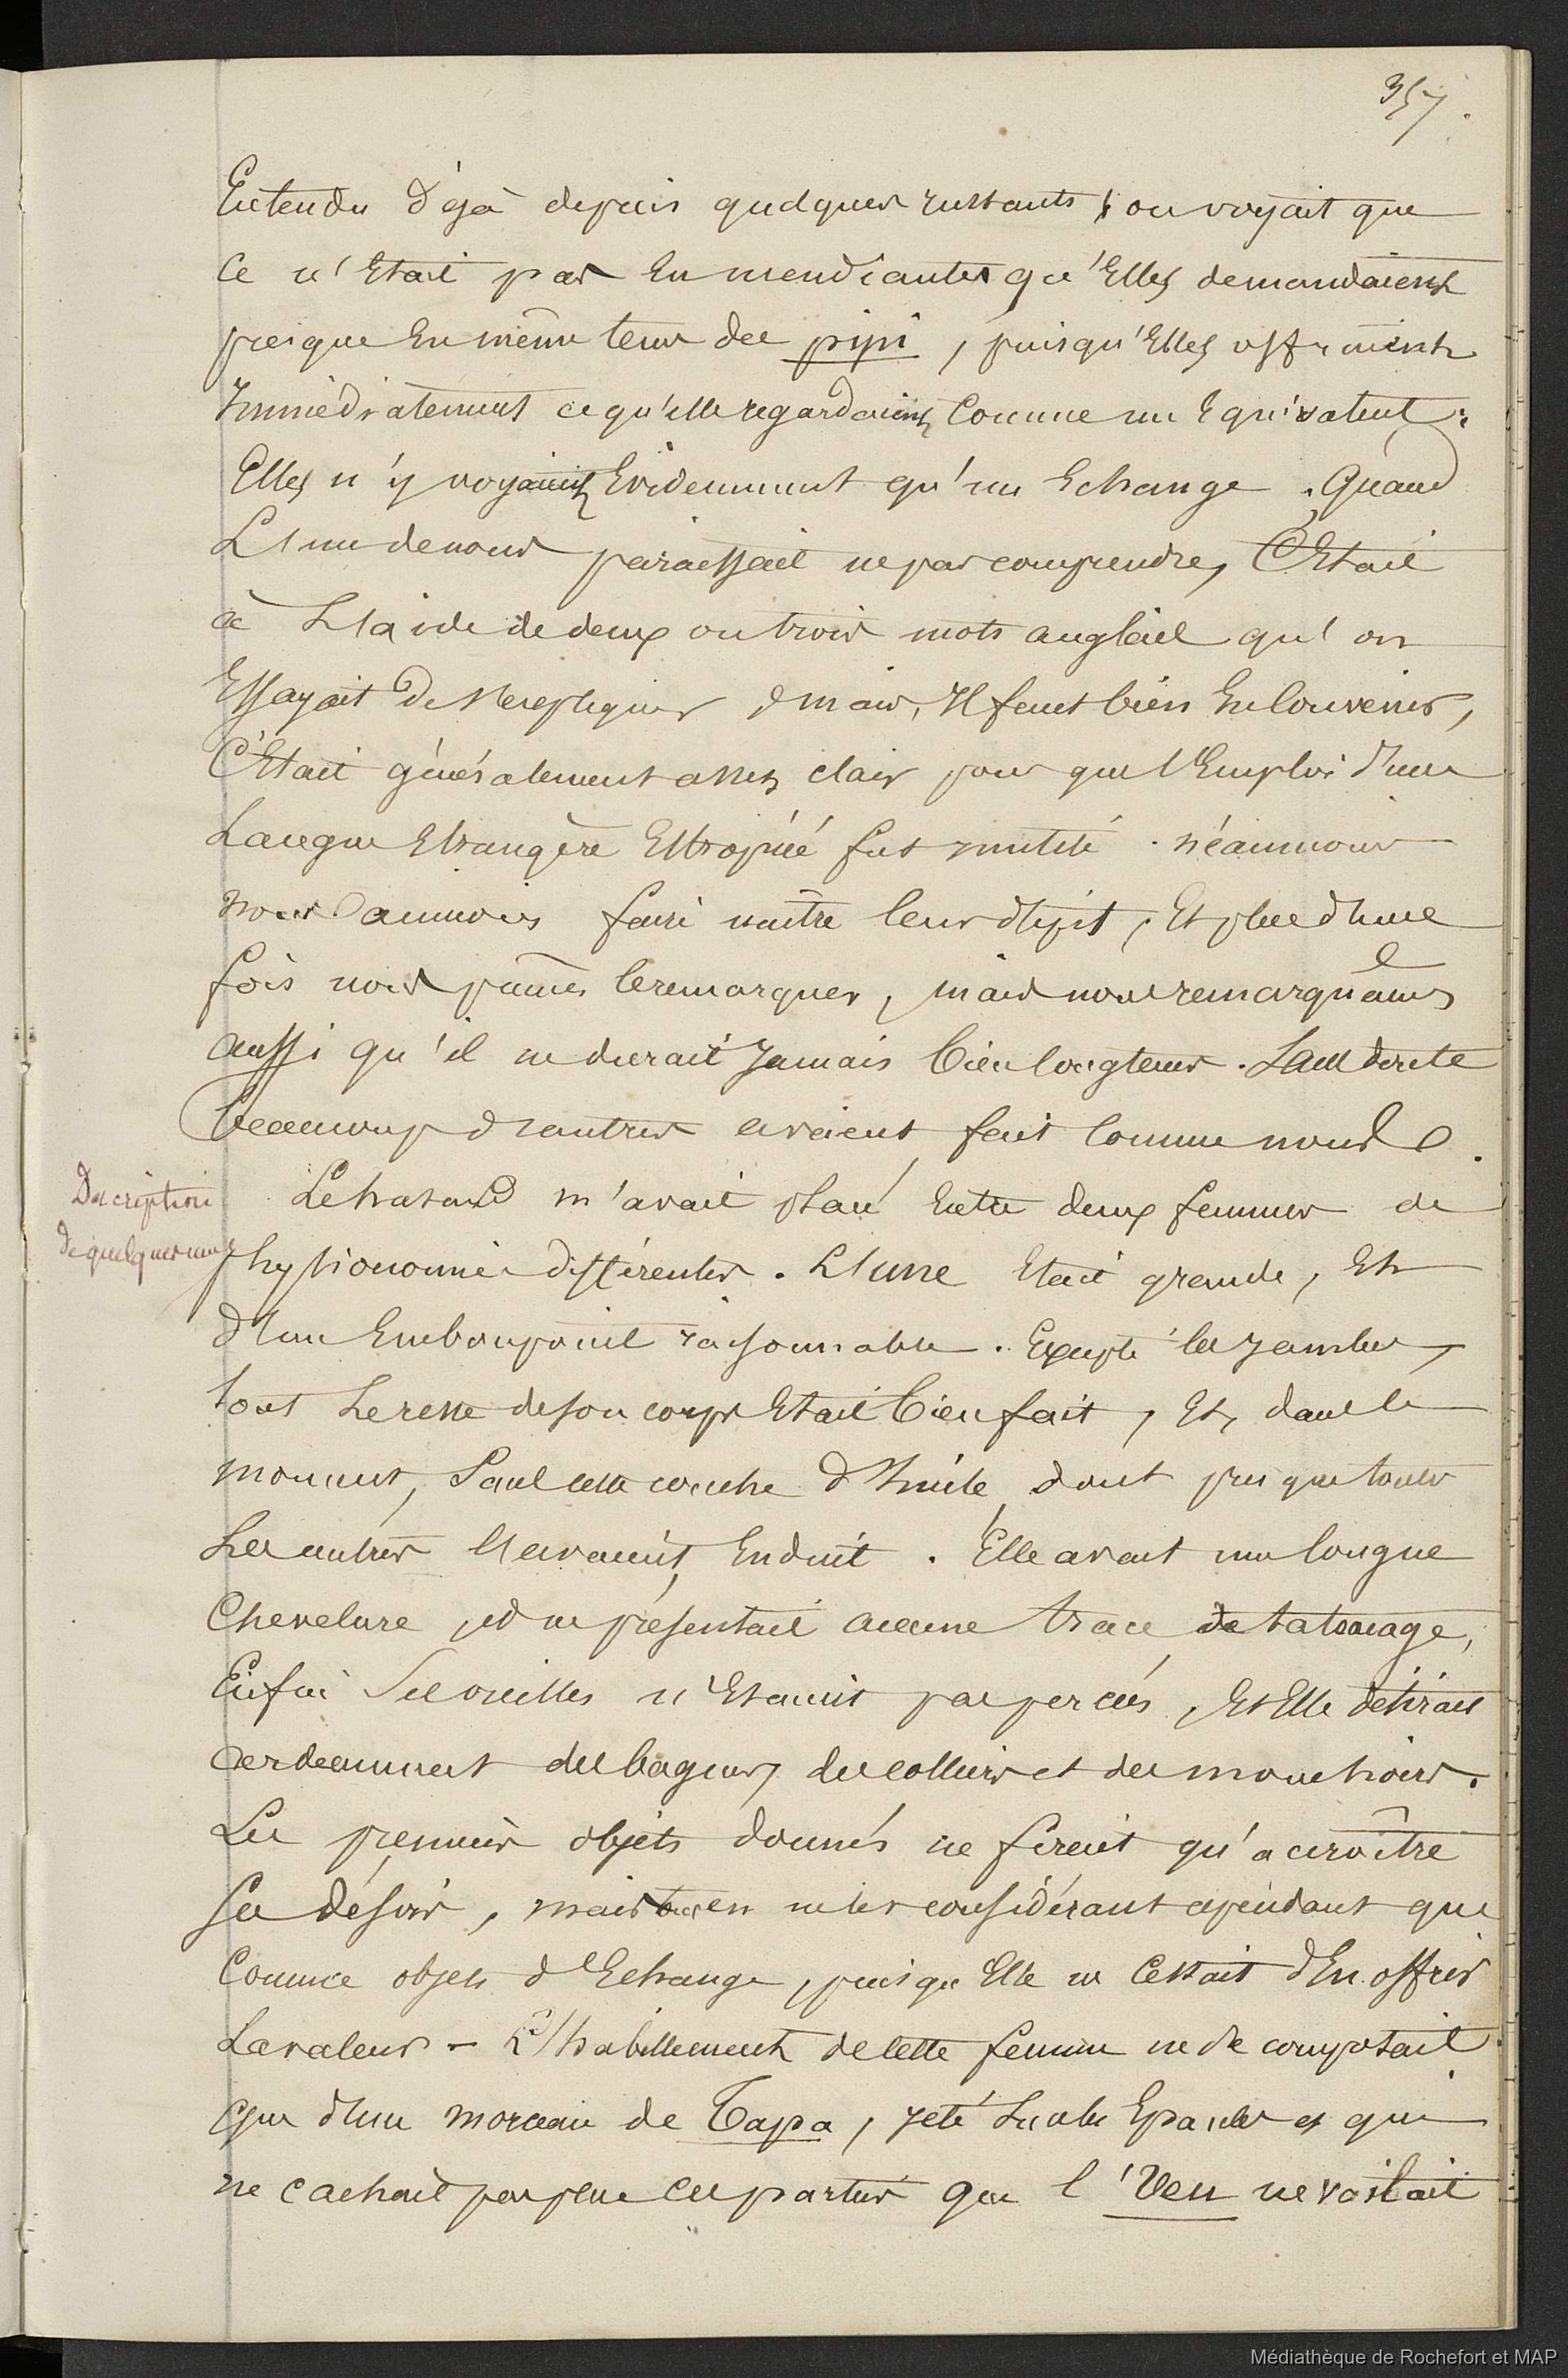 357.
Entendu déjà depuis quelques instants, on voyait que
ce n'était pas en mendiantes qu'Elles demandaient
presque en même tems des pipi, puisqu'Elles offraient
immédiatement ce qu'elle regardaient comme un équivalent;
Elles n'y voyaient évidemment qu'un échange. Quand
L'un de nous paraissait ne pas comprendre, C'était
à L'aide de deux ou trois mots anglais qu'on
Essayait de s'expliquer mais, Il faut bien En Convenir,
C'était généralement assez clair pour que l'Emploi d'une
Langue Etrangère Estropiée fut inutile. néanmoins
nous aimions faire naître leur dépit, Et plus d'une
fois nous pûmes le remarquer, mais nous remarquâmes
aussi qu'il ne durait Jamais bien longtems. Sans doute
beaucoup d'autres avaient fait comme nous.
Description
de quelques unes
Le hasard m'avait placé Entre deux femmes de
physionomies différentes. L'une Etait grande, Et
d'un Embonpoint raisonnable. Excepté les Jambes,
tout Le reste de son corps Etait bien fait, Et, dans le
moment, Sans cette couche d'huile dont presque toutes
Les autres s'avaient Enduit. Elle avait une longue
Chevelure, et ne présentait aucune trace de tatouage,
Enfin Ses oreilles n'Etaient pas percées, Et Elle désirait
ardemment des bagues, des colliers et des mouchoirs.
Les premiers objets donnés ne firent qu'accroître
Ses désirs, mais en ne les considérant cependant que
Comme objets d'Echange, puisqu'Elle ne Cessait d'En offrir
La valeur - L'habillement de cette femme ne se composait
que d'un morceau de Tapa, jeté Sur les Epaules et qui
ne cachait pas plus les parties que l'Veu ne voilait